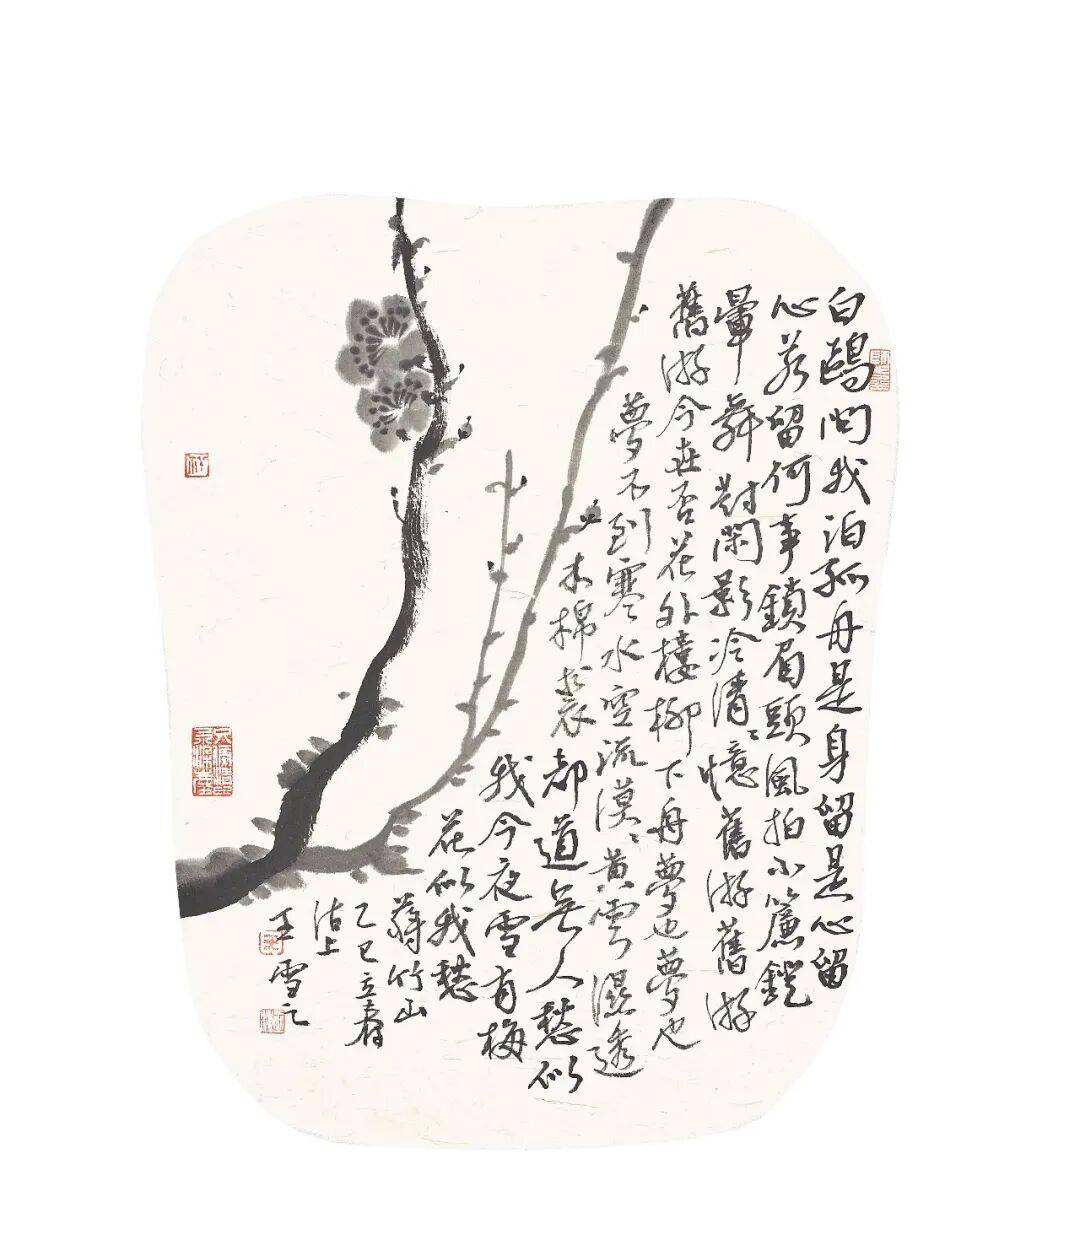 白鷗問我泊孤舟是身留是心留
心若留何事鎖眉頭風拍小簾鐙
暈舞對閑影冷清〻憶舊游舊游
舊游今在否花外樓柳下舟夢也夢也
夢不到寒水空流漠〻黄雲濕透
木棉裘都道無人愁似
我今夜雪有梅
花似我愁
蔣竹山
乙巳立春
沽上
王雪之